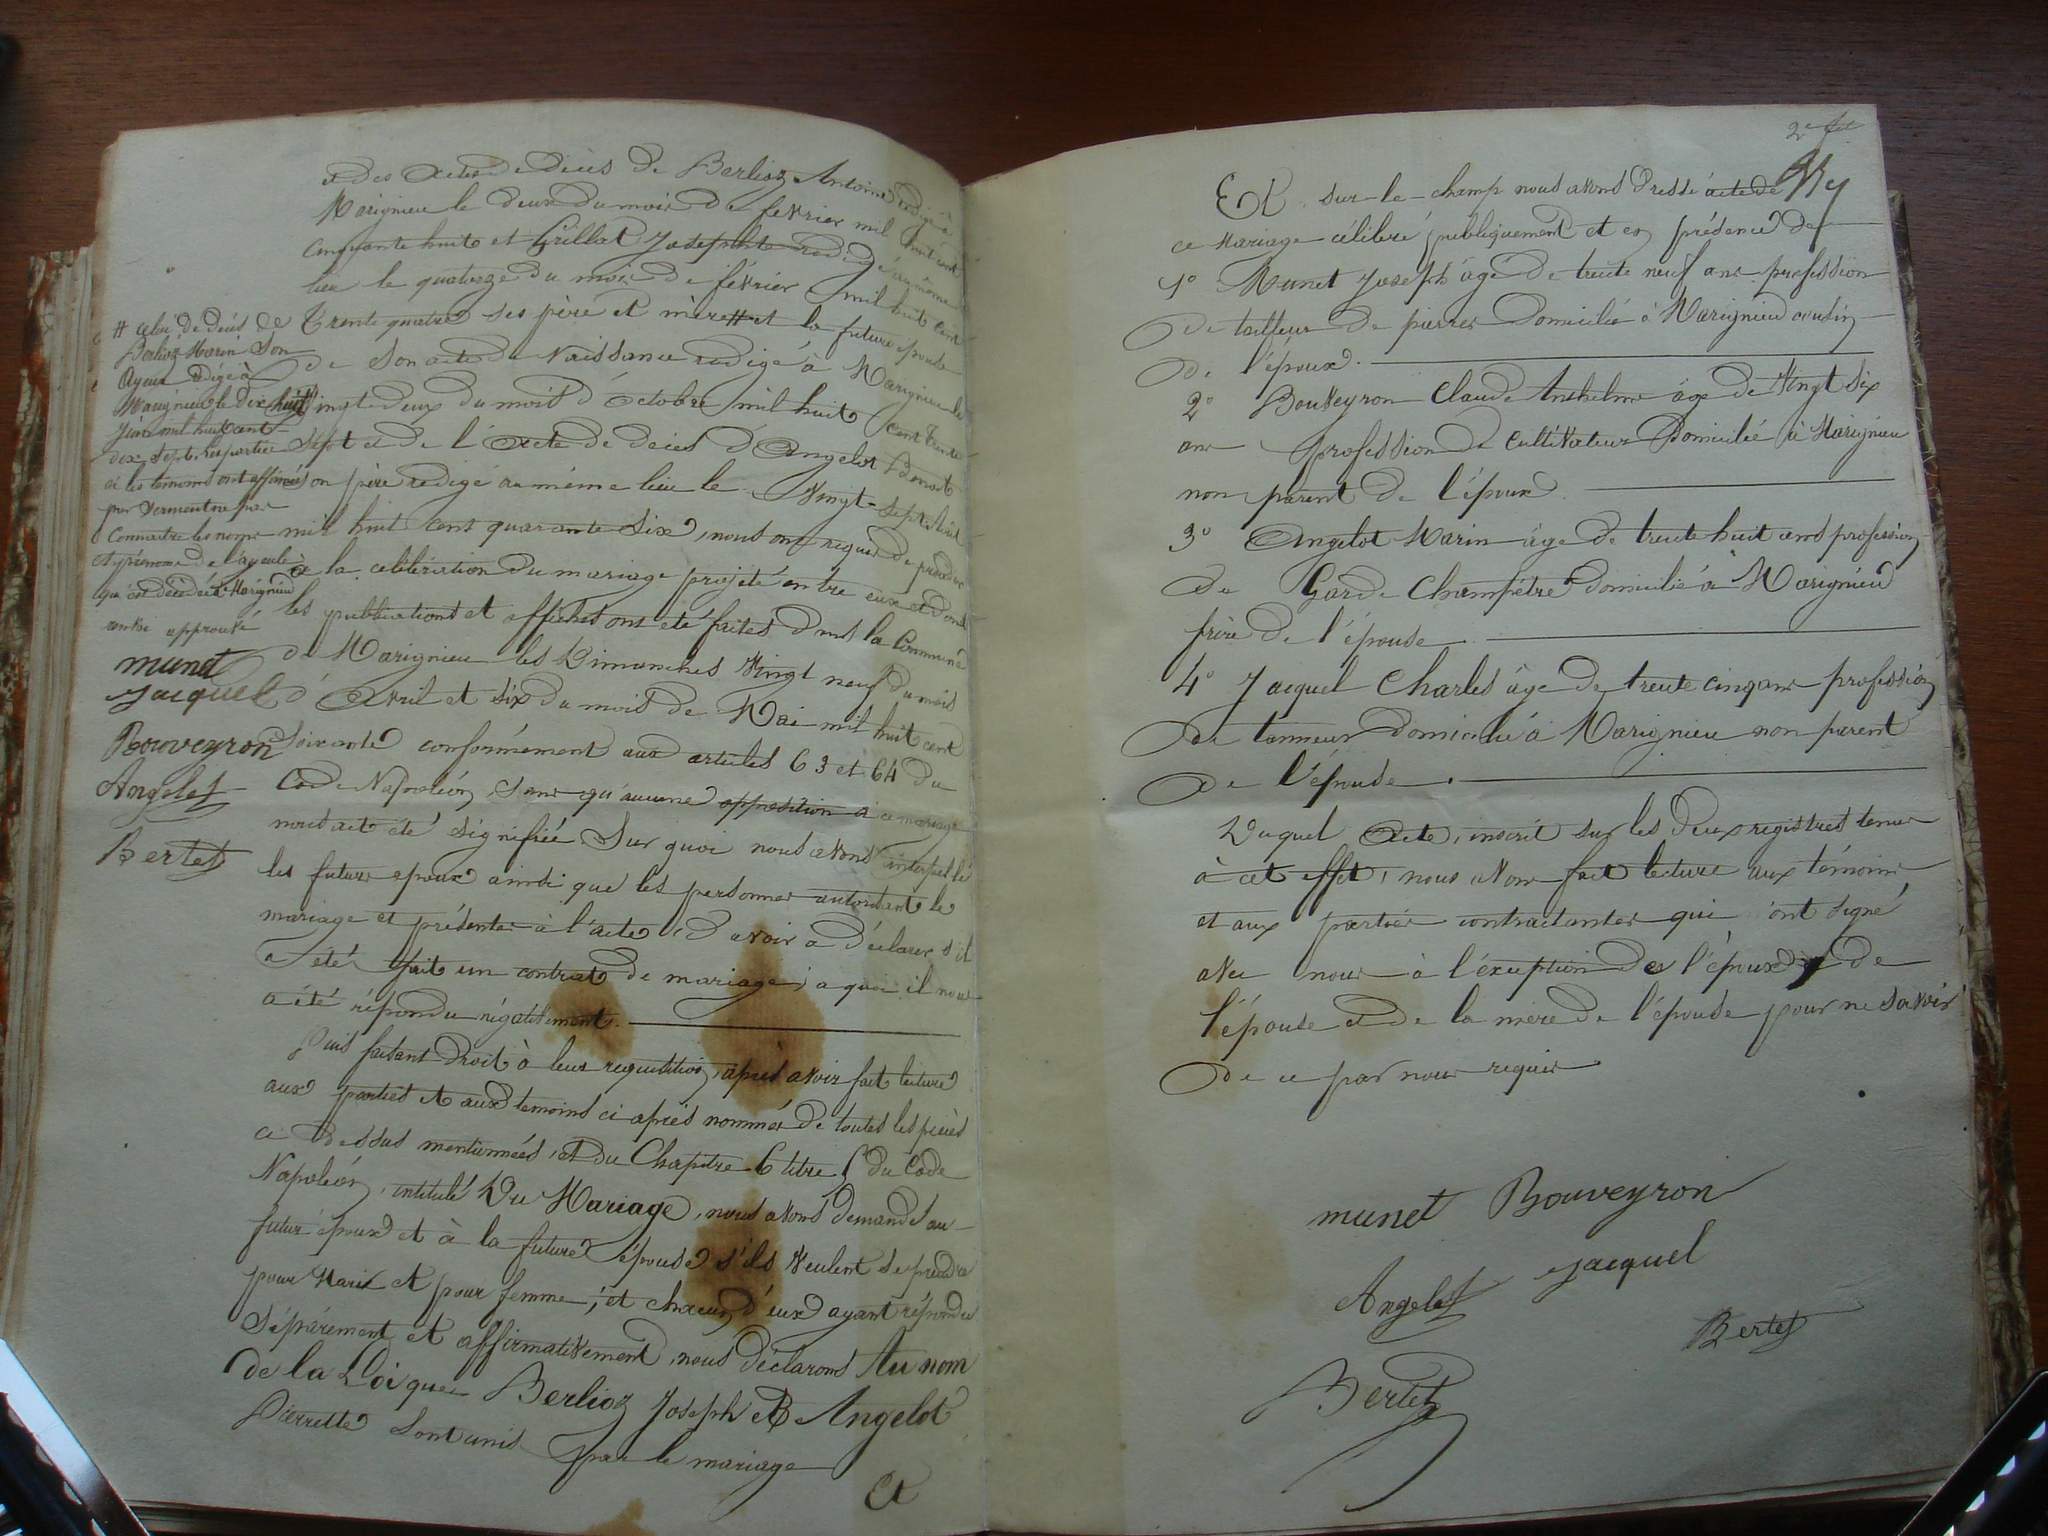 et des actes de décès de Berlioz Antoine rédigé à
Marignieu le deux du mois de février mil huit cent
cinquante huit et Grillot Josephte rédigé au même
lieu le quatorze du mois de février mil huit cent
trente quatre ses père et mère # et la future épouse
de son acte de Naissance rédigé à Marignieu le
vingt deux du mois d'Octobre mil huit cent trente
sept et de l'Acte de décès d'Angelot Benoit
son père rédigé au même lieu le vingt-sept
mil huit cent quarante six, nous ont requis de procéder
à la célébration du mariage projeté entre eux et dont
les publications et affiches ont été faites dans la Commune
de Marignieu les Dimanches vingt neuf du mois
d'Avril et six du mois de Mai mil huit cent
soixante conformément aux articles 63 et 64 du
Code Napoléon, sans qu'aucune opposition à ce mariage
nous ait été signifiée. Sur quoi nous avons interpellé
les futurs époux ainsi que les personnes autorisant le
mariage et présentes à l'acte, d'avoir à déclarer s'il
a été fait un contrat de mariage; a quoi il nous
a été répondu négativement.
Puis faisant droit à leur requisition, après avoir fait lecture
aux parties et aux temoins ci après nommés de toutes les pièces
ci dessus mentionnées, et du Chapitre 6 titre 5 du Code
Napoléon, intitulé Du Mariage, nous avons demandé au
futur époux et à la future épouse s'ils veulent se prendre
pour Mari et pour femme; et chacun d'eux ayant répondu
séparément et affirmativement, nous déclarons Au nom
de la Loi que Berlioz Joseph et Angelot
Pierrette sont unis par le mariage
Et
# celui de décès de
Berlioz Marin son
Ayeux rédigé à
Marignieu le dix huit
juin mil huit cent
dix sept. Les parties
et les témoins ont affirmé
par serment ne pas
connaitre les noms
et prénoms de l'ayeule
qui est décédée à Marignieu
approuvé
munet
jacquel
Bouveyron
Angelot
Bertet
2e
Et sur-le-champ nous avons dressé acte de
ce Mariage célébré publiquement et en présence de
1º Munet Joseph âgé de trente neuf ans profession
de tailleur de pierres domicilié à Marignieu cousin
de l'époux.
2º Bouveyron Claude Anthelme âgé de vingt six
ans profession de cultivateur domicilié à Marignieu
non parent de l'époux
3º Angelot Marin âgé de trente huit ans profession
de Garde Champêtre domicilié à Marignieu
frère de l'épouse
4º Jacquel Charles âgé de trente cinq ans profession
de tanneur domicilié à Marignieu non parent
de l'épouse.
Duquel Acte, inscrit sur les deux registres tenus
à cet effet, nous avons fait lecture aux témoins
et aux parties contractantes qui ont signé
avec nous à l'exception de l'époux de
l'épouse et de la mère de l'épouse pour ne savoir
de ce par nous requis
munet Bouveyron
Angelot jacquel
Bertet
Bertet